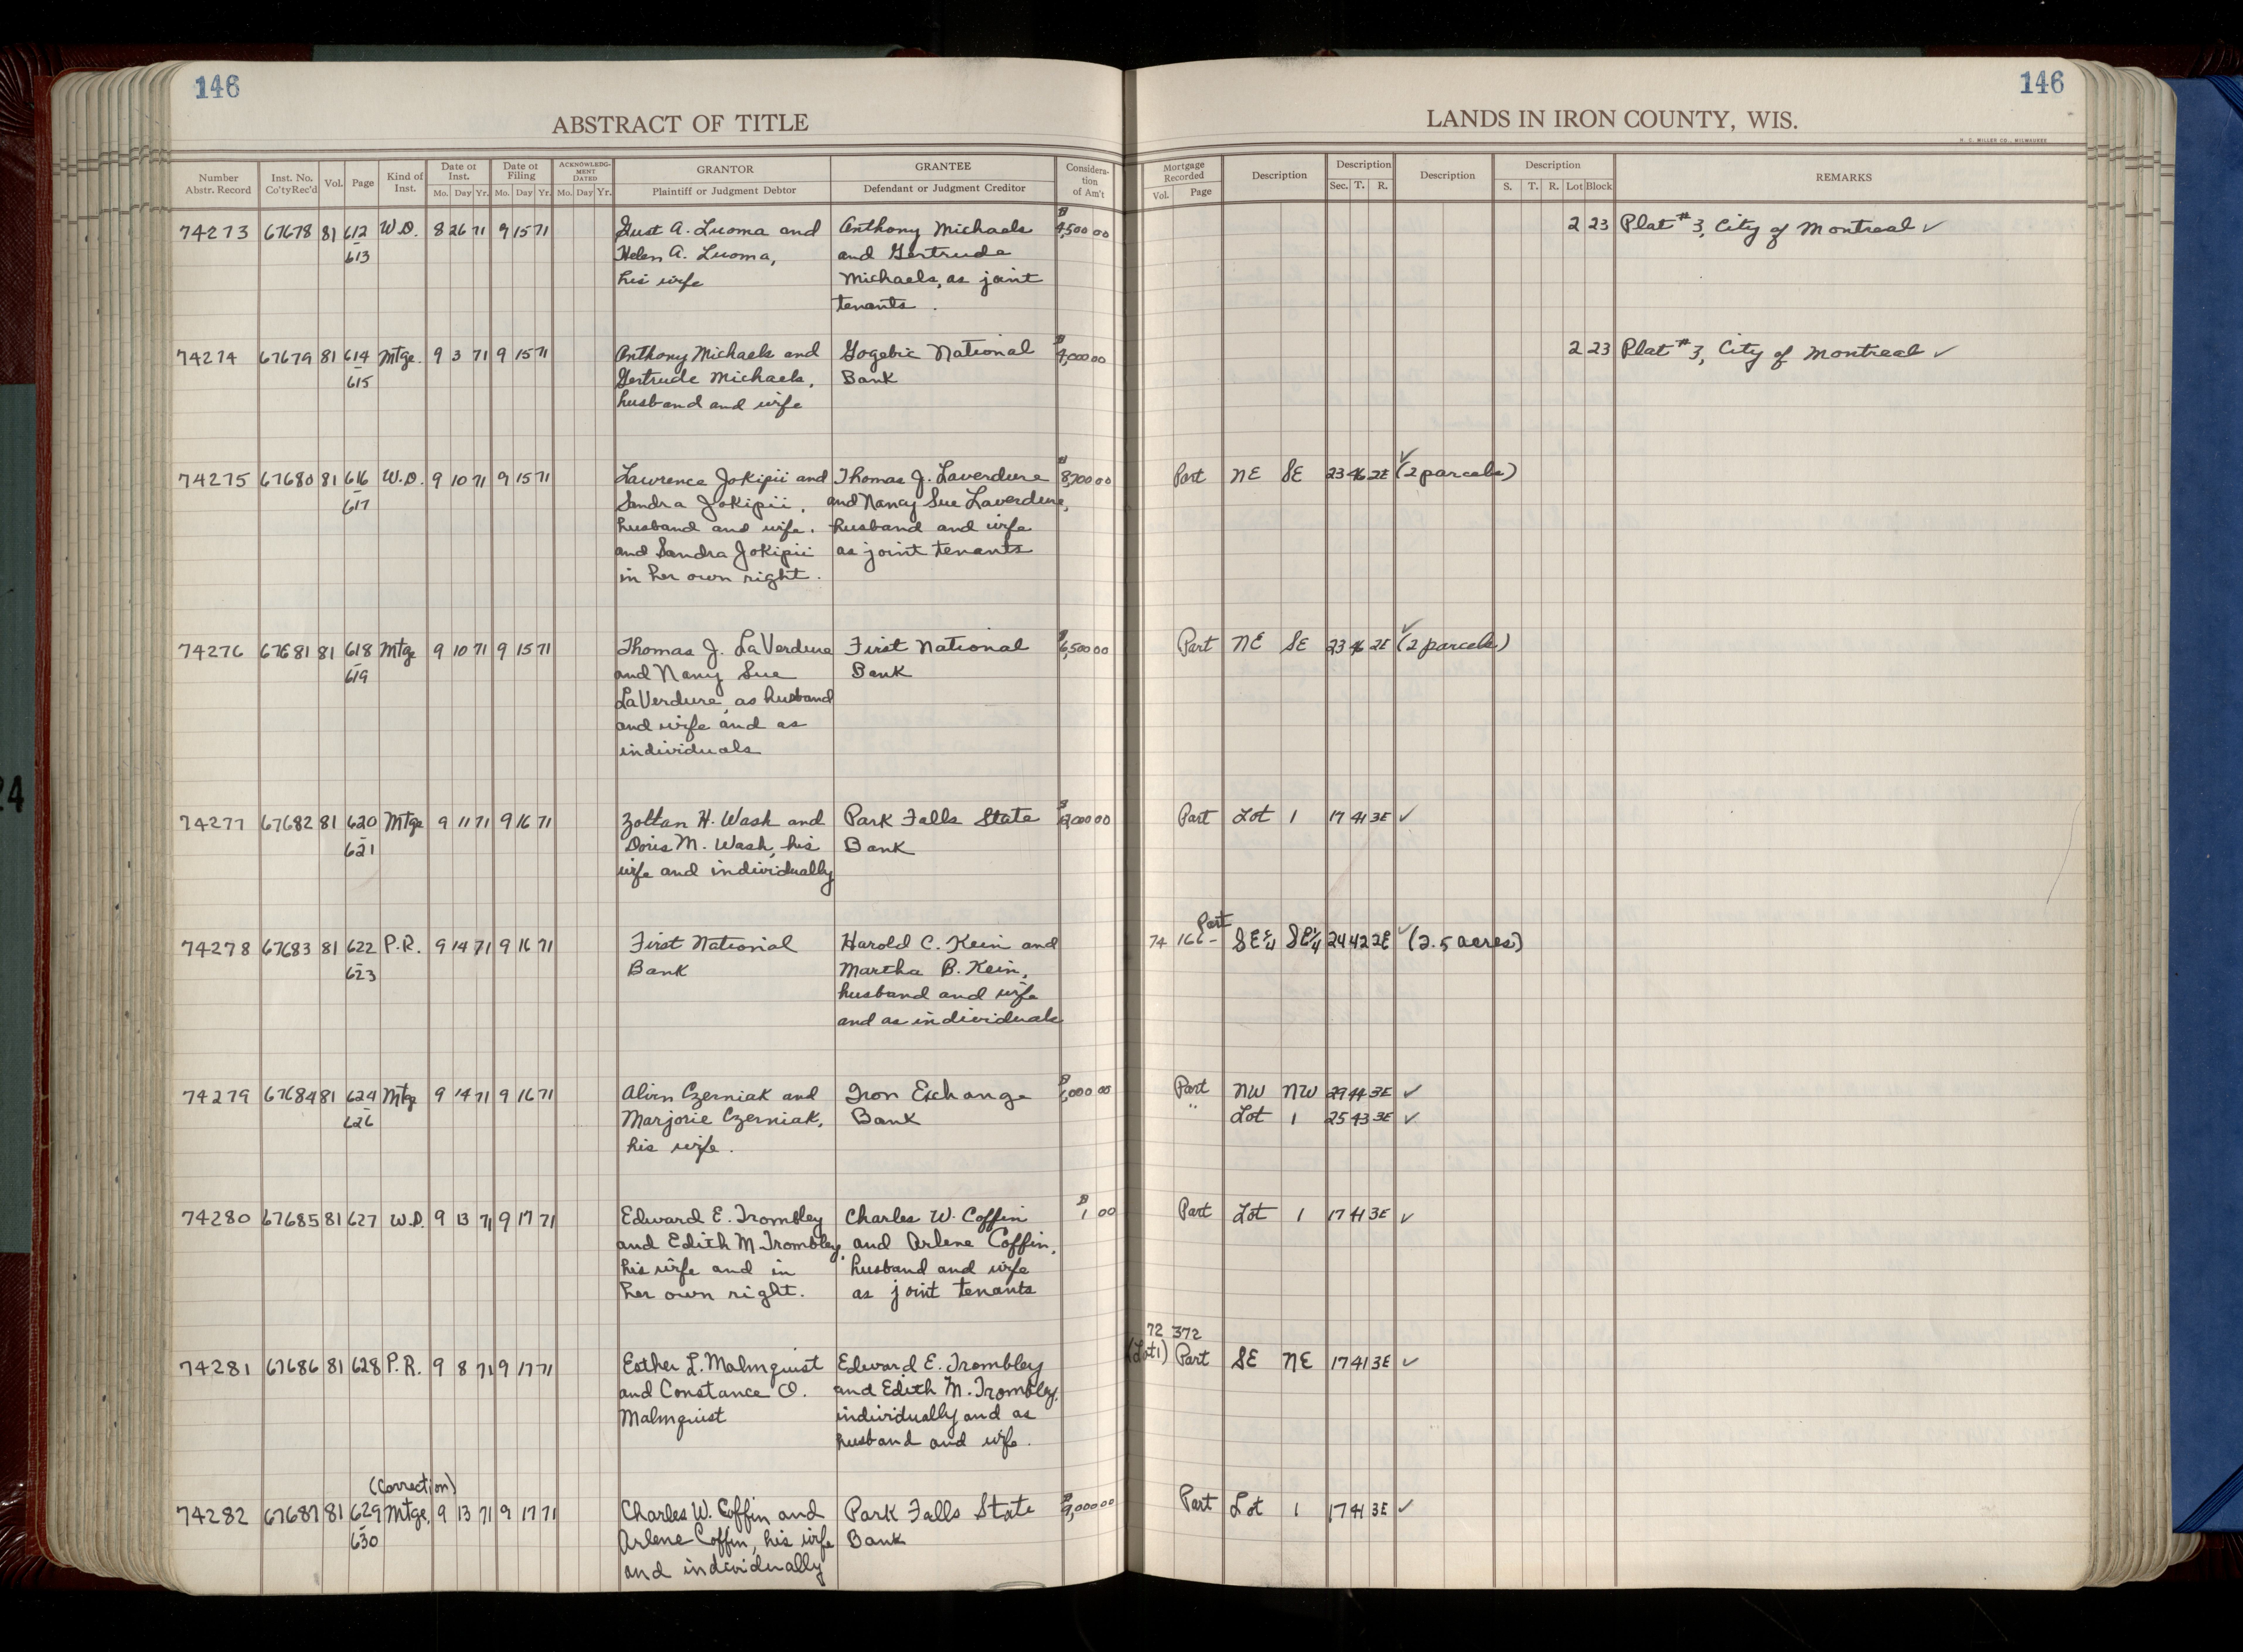 146
146
ABSTRACT OF TITLE
LANDS IN IRON COUNTY, WIS.
H. C. MILLER CO., MILWAUKEE
Number Abstr. Record | Inst. No. Co'ty Rec'd | Vol. | Page | Kind of Inst. | Date of Inst. Mo. Day Yr. | Date of Filing Mo. Day Yr. | ACKNOWLEDGMENT DATED Mo. Day Yr. | GRANTOR Plaintiff or Judgment Debtor | GRANTEE Defendant or Judgment Creditor | Consideration of Am't | Mortgage Recorded Vol. Page | Description | Description Sec. T. R. | Description | Description S. T. R. Lot Block | REMARKS
74273 67678 81 612 W.D. 8 26 71 9 15 71 Gust A. Luoma and Anthony Michaels $ 4,500 00 2 23 Plat #3, City of Montreal ✓
613 Helen A. Luoma, and Gertrude
his wife Michaels, as joint
tenants.
74274 67679 81 614 Mtge. 9 3 71 9 15 71 Anthony Michaels and Gogebic National $ 4,000 00 2 23 Plat #3, City of Montreal ✓
615 Gertrude Michaels, Bank
husband and wife
74275 67680 81 616 W.D. 9 10 71 9 15 71 Lawrence Jokipii and Thomas J. Laverdure $ 8,700 00 Part NE SE 23 46 2E ✓ (2 parcels)
617 Sandra Jokipii, and Nancy Sue Laverdure,
husband and wife. husband and wife
and Sandra Jokipii as joint tenants
in her own right.
74276 67681 81 618 Mtge 9 10 71 9 15 71 Thomas J. LaVerdure First National $ 6,500 00 Part NE SE 23 46 2E ✓ (2 parcels)
619 and Nany Sue Bank
LaVerdure, as husband
and wife and as
individuals
74277 67682 81 620 Mtge 9 11 71 9 16 71 Zoltan H. Wash and Park Falls State $ 00 Part Lot 1 17 41 3E ✓
621 Doris M. Wash, his Bank
wife and individually
74278 67683 81 622 P.R. 9 14 71 9 16 71 First National Harold C. Kein and 74 166- Part SE¼ SE¼ 24 42 2E ✓ (2.5 acres)
623 Bank Martha B. Kein,
husband and wife
and as individuals
74279 67684 81 624 Mtge 9 14 71 9 16 71 Alvin Czerniak and Iron Exchange $ 00 Part NW NW 29 44 3E ✓
626 Marjorie Czerniak, Bank " Lot 1 25 43 3E ✓
his wife.
74280 67685 81 627 W.D. 9 13 71 9 17 71 Edward E. Trombley Charles W. Coffin $ 1 00 Part Lot 1 17 41 3E ✓
and Edith M. Trombley, and Arlene Coffin,
his wife and in husband and wife
her own right. as joint tenants
72 372
74281 67686 81 628 P.R. 9 8 71 9 17 71 Esther L. Malmquist Edward E. Trombley (Lot 1) Part SE NE 17 41 3E ✓
and Constance O. and Edith M. Trombley,
Malmquist individually and as
husband and wife.
(Correction)
74282 67687 81 629 Mtge. 9 13 71 9 17 71 Charles W. Coffin and Park Falls State $ 9,000 00 Part Lot 1 17 41 3E ✓
630 Arlene Coffin, his wife Bank
and individually